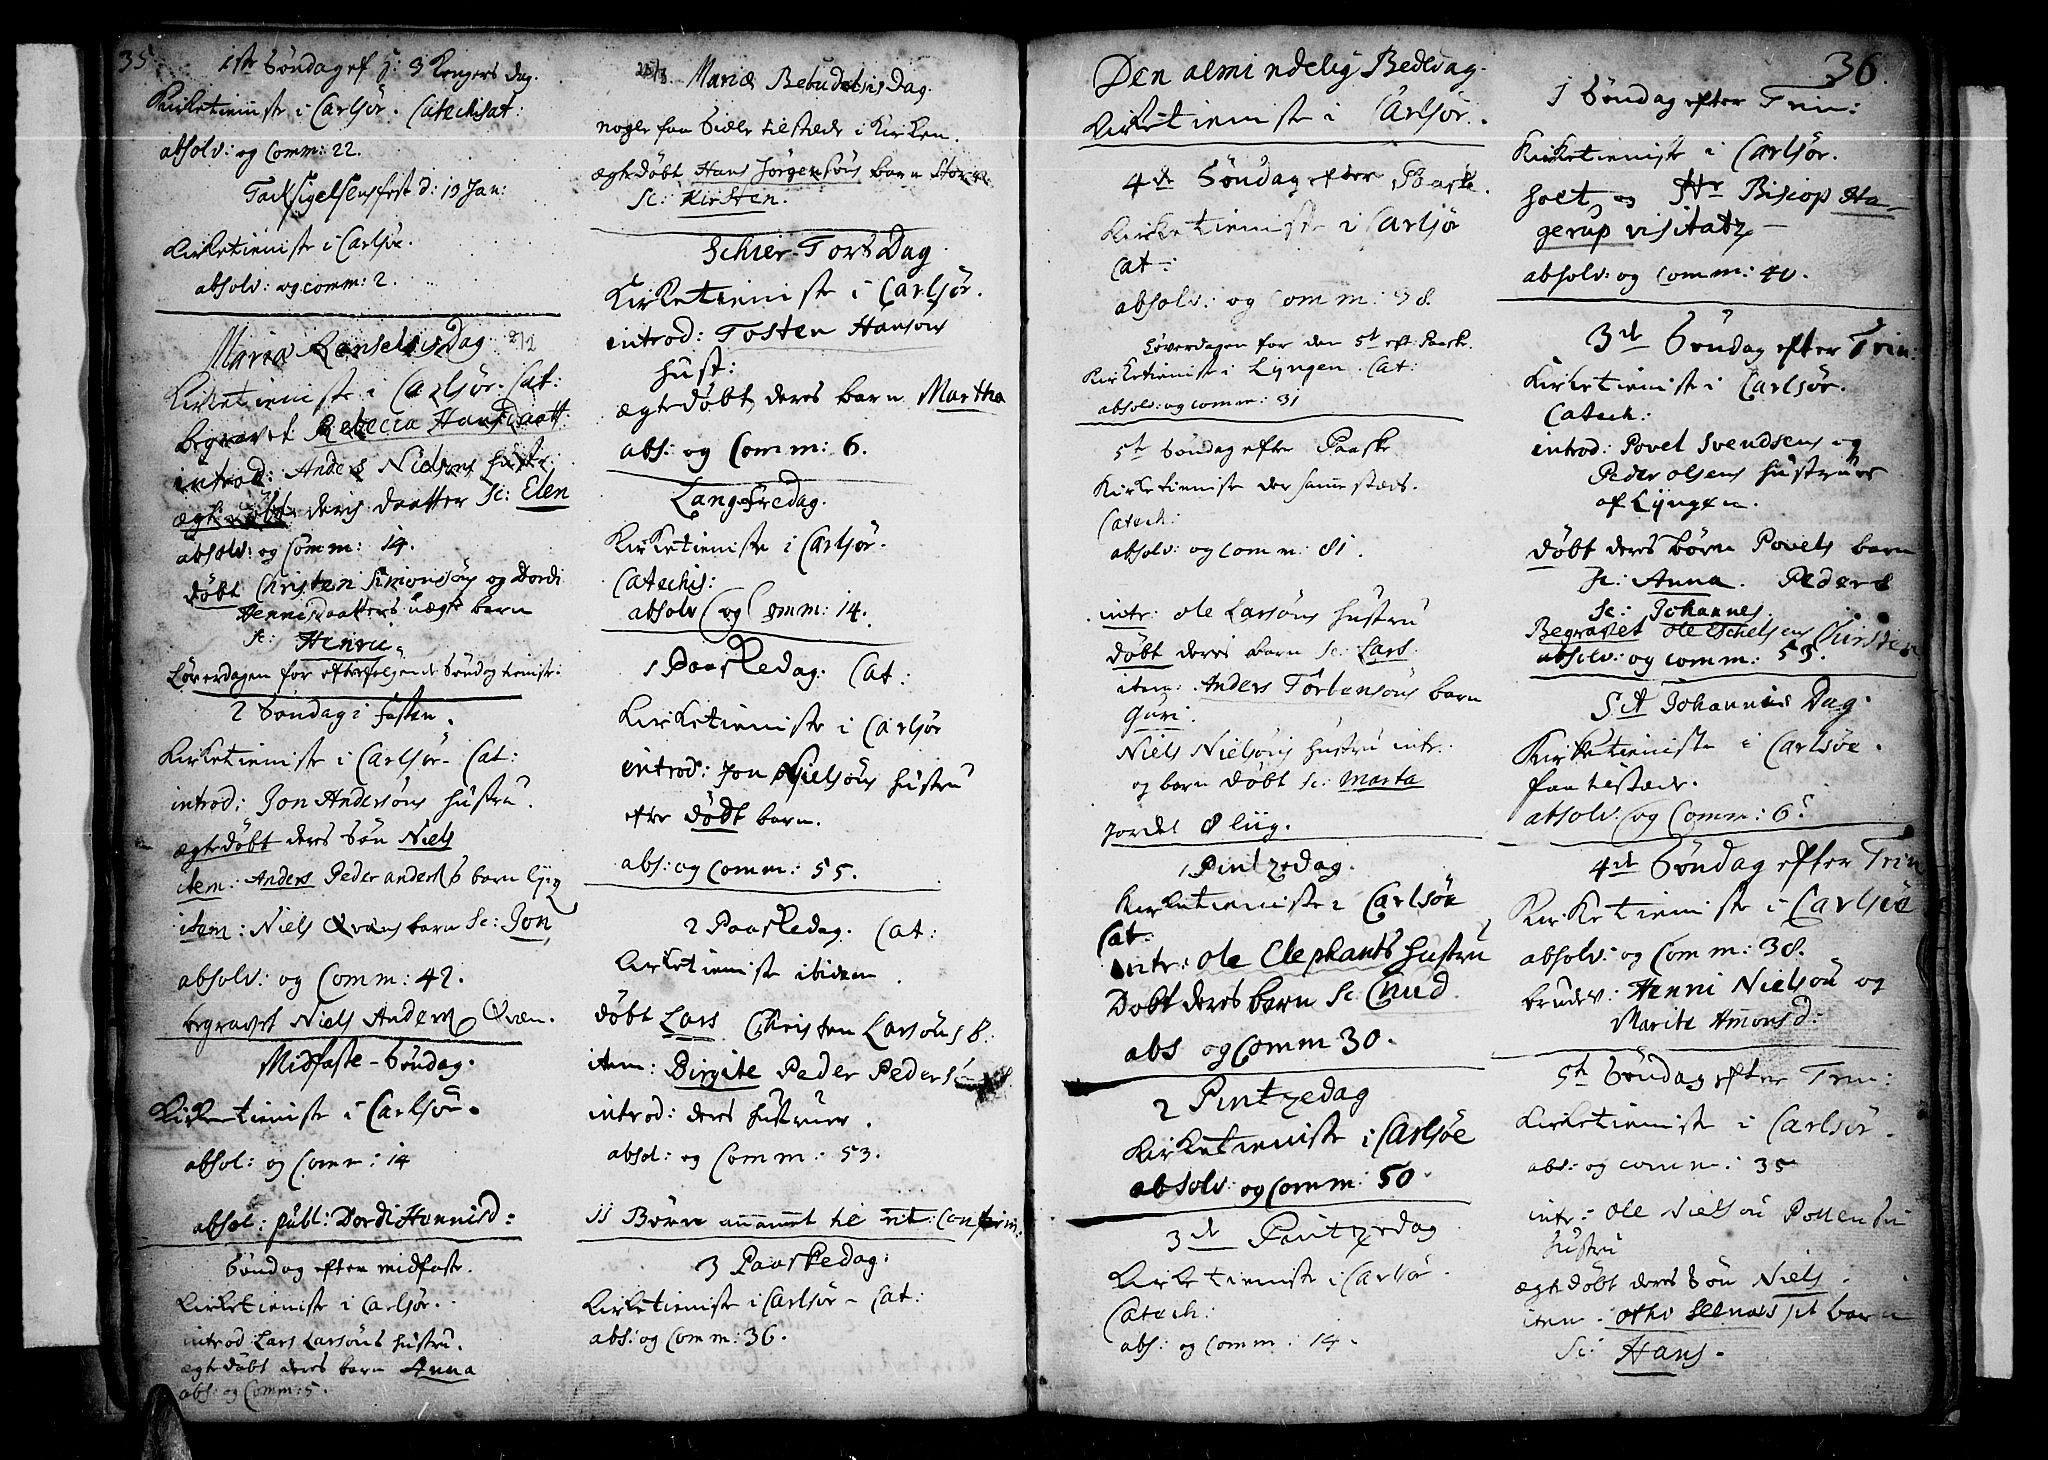 35
1ste Søndag ef h: 3 Kongers dag.
Kirketieniste i Carlsør. Catechisat:
absolv: og Comm: 22.
Tachsigelsens fest d: 19 Jan:
Kirketieniste i Carlsøe.
absolv: og comm: 2.
Mariæ Renselsis Dag 2/2
Kirketieniste i Carlsør. Cat:
begravet Rebecca Hansdaatt:
introd: Anders Nielsøns hustr:
ægte døbt deris daatter Sc: Elen
absolv: og Comm: 14.
døbt Christen Simonssøns og Dordi
Hennisdaatters uægte barn
Sc: Henric
Løverdagen for efterfølgende Søndag tienist:
2 Søndag i fasten.
Kirketieniste i Carlsør - Cat:
introd: Jon Andersøns hustru.
ægte døbt deres Søn Niels
item: Anders Peder anders: barn
item: Niels Qvæns barn Sc: Jon
absolv: og Comm: 42.
begravet Niels Anders: Qvæn.
Midfaste-Søndag.
Kirketieniste i Carlsør.
absol: og Comm: 14
absol: publ: Dordi Hennisd:
Søndag efter midfaste.
Kirketieniste i Carlsør.
introd: Lars Larsøns hustru.
ægte døbt deres barn Anna
abs: og Comm: 5.
25/3 Mariæ Bebudelsis Dag.
nogle faa Siæle tilstæde i Kirken.
ægte døbt Hans Jørgensøns barn
Sc: Kirsten.
Schier-Torsdag
Kirketieniste i Carlsør.
introd: Tosten Hansøns
hust:
ægte døbt deres barn Martha
abs: og Comm: 6.
Langfredag.
Kirketieniste i Carlsør.
Catechis:
absolv og Comm: 14.
1 Paaskedag. Cat:
Kirketieniste i Carlsør
introd: Jon Nielsøns hustru
efter dødt barn.
abs: og Comm: 55.
2 Paaskedag. Cat:
Kirketieniste ibidem.
døbt Lars Christen Larsøns b.
item: Birgite Peder Peders:
introd: deres hustruer.
absol: og Comm: 53.
11 Børn annammet til rit: Confirm:
3 Paaskedag:
Kirketieniste i Carlsør - Cat:
abs: og Comm: 36.
Den almindelig Bededag.
Kirketieniste i Carlsør.
4de Søndag efter Paaske.
Kirketieniste i Carlsør
Cat:
absolv: og Comm: 38.
Løverdagen for den 5te eft: Paask.
Kirketieniste i Lyngen. Cat:
absolv: og comm: 31
5te Søndag efter Paaske
Kirketieniste der samme stæds.
Catech:
absolv: og Comm: 81.
intr: Ole Larsøns hustru
døbt deres barn Sc: Lars.
item: Anders Torbensøns barn
Guri.
Niels Nielsøns hustru intr:
og barn døbt Sc: Marta
Jordet 8 liig.
1 Pintzedag.
Kirketieniste i Carlsøe
Cat.
intr: Ole Elephants hustru
Døbt deres barn Sc: Cnud.
abs og Comm 30.
2 Pintzedag
Kirketieniste i Carlsøe
absolv: og Comm: 50.
3de Pintzedag
Kirketieniste i Carlsør.
Catech:
abs: og Comm: 14.
36
1 Søndag efter Trin:
Kirketieniste i Carlsør.
holt og Hr Biscop Ha-
gerup visitatz
absolv: og Comm: 40.
3de Søndag efter Trin:
Kirketieniste i Carlsør.
Catech:
introd: Povel Svendsens og
Peder Olsens hustruer
af Lyngen.
døbt deres børn Povels barn
Sc: Anna. Peders
Sc: Johannes.
Begravet Ole
absolv: og comm: 53.
Sct Johannis Dag.
Kirketieniste i Carlsøe.
faa tilstæde.
absolv: og Comm: 6.
4de Søndag efter Trin
Kirketieniste i Carlsøe
absolv: og Comm: 38.
brudev: Henni Nielsøn og
Marite Amonsd:
5te Søndag efter Trin:
Kirketieniste i Carlsør.
abs: og comm: 35
intr: Ole Nielsøn
hustru
ægte døbt deres Søn Niels.
item. barn
Sc: Hans.